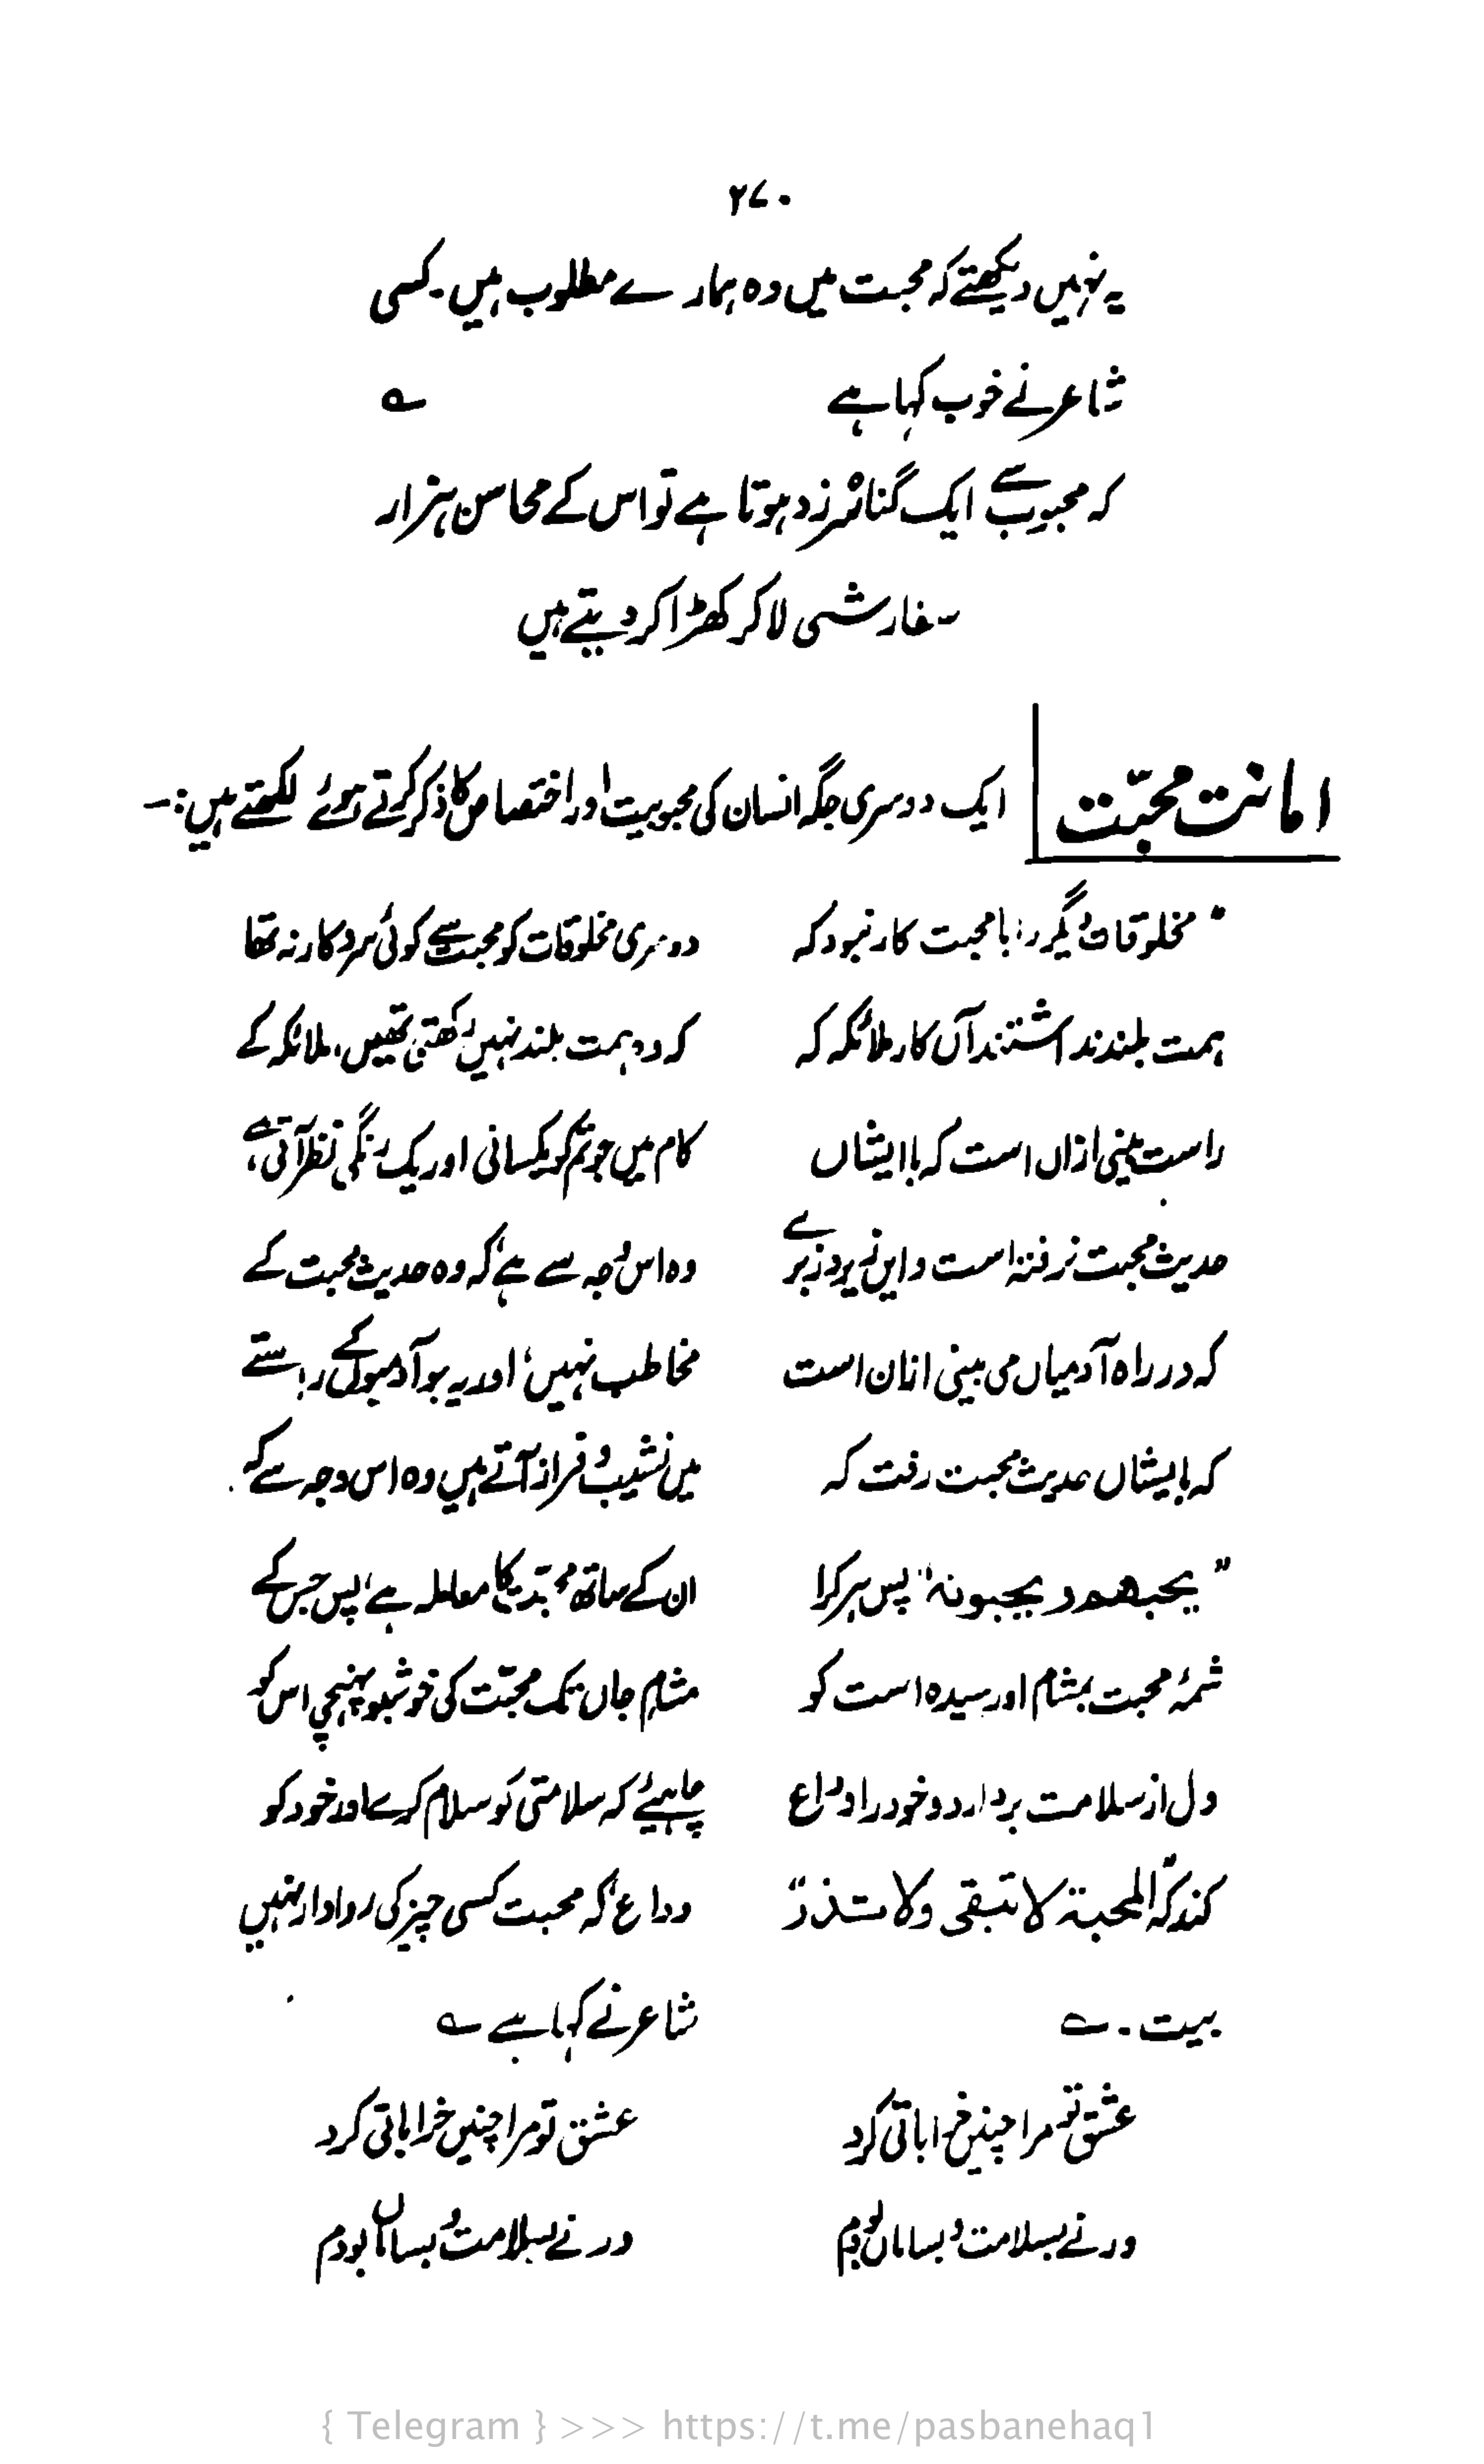 ۲۷۰
یہ نہیں دیکھتے کہ محبت میں وہ ہمارے مطلوب ہیں۔ کسی
شاعر نے خوب کہا ہے ؎
کہ محبوب سے ایک گناہ سرزد ہوتا ہے تو اس کے محاسن ہزار
سفارشی لا کر کھڑا کر دیتے ہیں
امانت محبّت
ایک دوسری جگہ انسان کی محبوبیت اور اختصاص کا ذکر کرتے ہوئے لکھتے ہیں:۔
"مخلوقات دیگر را با محبت کار نبود کہ
ہمت بلند نداشتند آں کار ملائکہ کہ
راست بینی ازاں است کہ با ایشاں
حدیث محبت نرفتہ است و ایں زیر و زبرے
کہ در راہ آدمیاں می بینی ازان است
کہ با یشاں حدیث محبت رفت کہ
"یحبھم و یحبونہ" پس ہر کرا
شمۂ محبت بمشام او رسیدہ است گو
دل از سلامت بردارد و خود را وداع
کند کہ المحبۃ لا تبقی ولا تذر"
بیت۔ ؎
عشق تو مرا چنیں خراباتی کرد
ورنے بسلامت و بساماں بودم
دوسری مخلوقات کو محبت سے کوئی سروکار نہ تھا
کہ وہ ہمت بلند نہیں رکھتی تھیں، ملائکہ کے
کام میں جو تم کو یکسانی اور یک رنگی نظر آتی ہے،
وہ اس وجہ سے ہے کہ وہ حدیث محبت کے
مخاطب نہیں، اور یہ جو آدمیوں کے راستے
میں نشیب و فراز آتے ہیں وہ اس وجہ سے کہ
ان کے ساتھ محبّت کا معاملہ ہے، پس جس کے
مشامِ جاں تک محبّت کی خوشبو پہنچی اس کو
چاہیئے کہ سلامتی کو سلام کرے اور خود کو
وداع، کہ محبت کسی چیز کی روادار نہیں
شاعر نے کہا ہے ؎
عشق تو مرا چنیں خراباتی کرد
ورنے بسلامت و بساماں بودم
{ Telegram } >>> https://t.me/pasbanehaq1